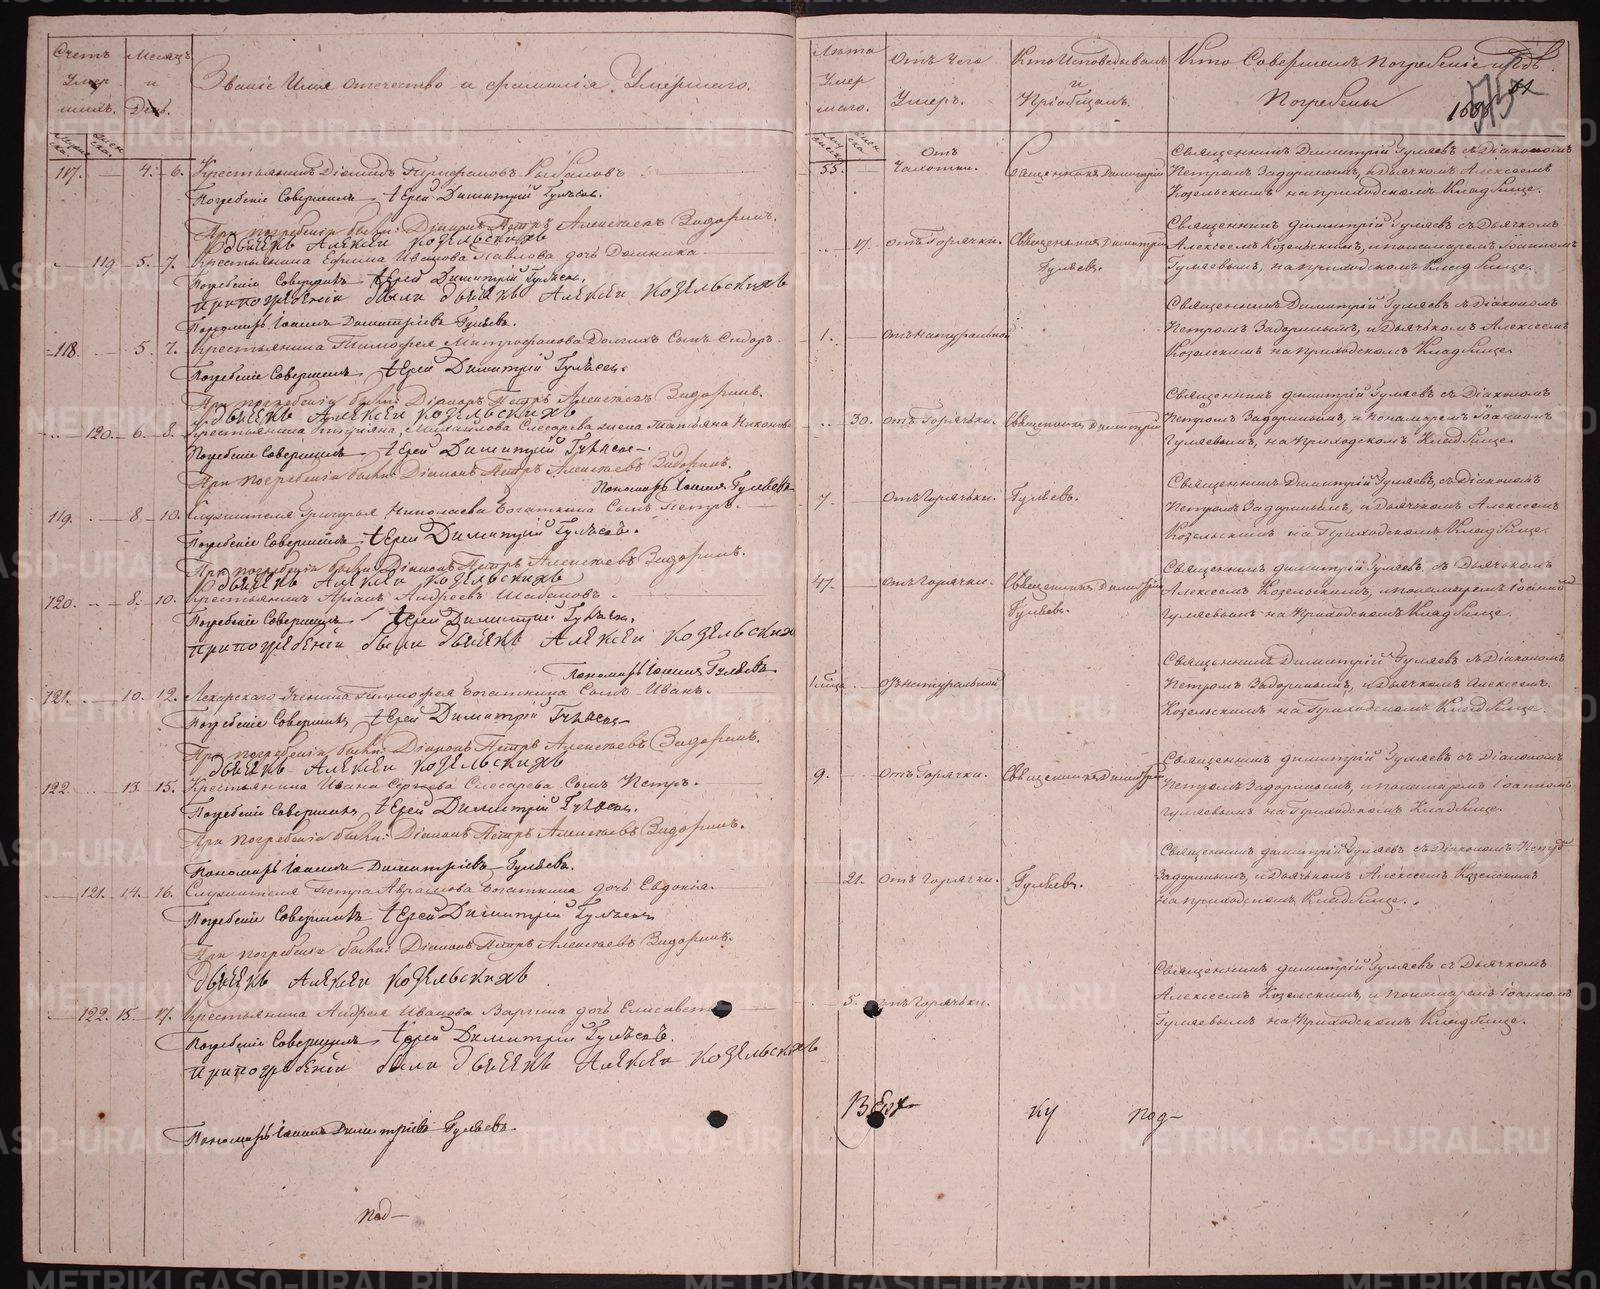 Счетъ Умершихъ. Месяцъ и День. Званіе Имя отечество и фамилія Умершаго.
117. — 4. 6. Крестьянинъ Діомидъ
Погребеніе Совершилъ Іерей Димитрій Гуляевъ.
При погребеніи были: Діаконъ Петръ Алексѣевъ Задоринъ.
Дьячекъ Алексѣй Козельскихъ
119. 5. 7. Крестьянина Ефима Иванова Павлова дочь Домника
Погребеніе Совершилъ Іерей Димитрій Гуляевъ.
при погребеніи были дьячекъ Алексѣй Козельскихъ
Пономарь Іоаннъ Димитріевъ Гуляевъ.
118. — 5. 7. Крестьянина Тимофея Митрофанова Долгихъ Сынъ Сидоръ.
Погребеніе Совершилъ Іерей Димитрій Гуляевъ.
При погребеніи были: Діаконъ Петръ Алексѣевъ Задоринъ.
Дьячекъ Алексѣй Козельскихъ
120. 6. 8. Крестьянина Михайлова Слесарева жена Татьяна Никонова
Погребеніе Совершилъ Іерей Димитрій Гуляевъ
При погребеніи были: Діаконъ Петръ Алексѣевъ Задоринъ.
Пономарь Іоаннъ Гуляевъ
119. — 8. 10. Служителя Григорья Николаева Богаткина Сынъ Петръ.
Погребеніе Совершилъ Іерей Димитрій Гуляевъ.
При погребеніи были: Діаконъ Петръ Алексѣевъ Задоринъ.
Дьячекъ Алексѣй Козельскихъ
120. — 8. 10. Крестьянинъ Андреевъ Шабановъ.
Погребеніе Совершилъ Іерей Димитрій Гуляевъ.
при погребеніи были дьячекъ Алексѣй Козельскихъ
Пономарь Іоаннъ Гуляевъ
121. — 10. 12. Лекарскаго Ученика Тимофея Богаткина Сынъ Иванъ.
Погребеніе Совершилъ Іерей Димитрій Гуляевъ
При погребеніи были: Діаконъ Петръ Алексѣевъ Задоринъ.
Дьячекъ Алексѣй Козельскихъ
122. 13. 15. Крестьянина Ивана Слесарева Сынъ Петръ.
Погребеніе Совершилъ Іерей Димитрій Гуляевъ.
При погребеніи были: Діаконъ Петръ Алексѣевъ Задоринъ.
Пономарь Іоаннъ Димитріевъ Гуляевъ.
121. 14. 16. Служителя Петра Авраамова Богаткина дочь Евдокія.
Погребеніе Совершилъ Іерей Димитрій Гуляевъ
При погребеніи были: Діаконъ Петръ Алексѣевъ Задоринъ.
Дьячекъ Алексѣй Козельскихъ
122. 15. 17. Крестьянина Андрея Иванова Варгина дочь Елисавета
Погребеніе Совершилъ Іерей Димитрій Гуляевъ.
при погребеніи были дьячекъ Алексѣй Козельскихъ
Пономарь Іоаннъ Димитріевъ Гуляевъ.
под—
Лѣта Умершаго. Отъ Чего Умеръ. Кто Исповедывалъ и Пріобщалъ. Кто Совершалъ Погребеніе и гдѣ Погребены
Священникъ Димитрій Гуляевъ съ Діакономъ
55. Отъ Чахотки. Священникъ Димитрій Петромъ Задоринымъ, и дьячкомъ Алексеемъ
Козельскимъ на приходскомъ Кладбище.
Священникъ Димитрій Гуляевъ съ Дьячкомъ
17. Отъ Горячки. Священникъ Димитрій Алексеемъ Козельскимъ, и пономаремъ Іоанномъ
Гуляевъ. Гуляевымъ, на приходскомъ Кладбище.
Священникъ Димитрій Гуляевъ съ Діакономъ
1. Отъ натуральной Петромъ Задоринымъ, и Дьячкомъ Алексеемъ
Козельскимъ на приходскомъ Кладбище.
Священникъ Димитрій Гуляевъ съ Діакономъ
30. Отъ Горячки. Священникъ Димитрій Петромъ Задоринымъ, и Пономаремъ Іоанномъ
Гуляевымъ, на Приходскомъ Кладбище.
Священникъ Димитрій Гуляевъ, съ Діакономъ
7. Отъ Горячки. Гуляевъ. Петромъ Задоринымъ, и Дьячкомъ Алексеемъ
Козельскимъ на Приходскомъ Кладбище.
Священникъ Димитрій Гуляевъ съ Дьячкомъ
47. Отъ Горячки. Священникъ Димитрій Алексеемъ Козельскимъ, и пономаремъ Іоанномъ
Гуляевъ. Гуляевымъ на Приходскомъ Кладбище.
Священникъ Димитрій Гуляевъ съ Діакономъ
Отъ натуральной Петромъ Задоринымъ, и Дьячкомъ Алексеемъ
Козельскимъ на Приходскомъ Кладбище.
Священникъ Димитрій Гуляевъ съ Діакономъ
9. Отъ Горячки. Священникъ Димитрій Петромъ Задоринымъ, и пономаремъ Іоанномъ
Гуляевымъ на Приходскомъ Кладбище.
Священникъ Димитрій Гуляевъ съ Діакономъ Петромъ
21. Отъ Горячки. Гуляевъ. Задоринымъ, и Дьячкомъ Алексеемъ Козельскимъ
на приходскомъ Кладбище.
Священникъ Димитрій Гуляевъ съ Дьячкомъ
5. Отъ Горячки. Алексеемъ Козельскимъ, и пономаремъ Іоанномъ
Гуляевымъ на Приходскомъ Кладбище.
ку под—
METRIKI.GASO-URAL.RU